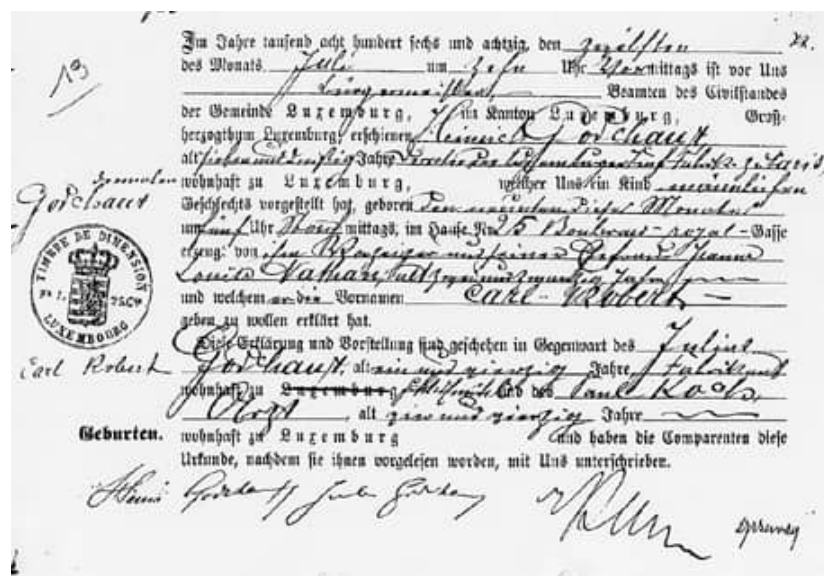 Im Jahre tausend acht hundert sechs und achtzig, den zwölften
des Monats Juli um zehn Uhr Vormittags ist vor Uns
Bürgermeister, Beamten des Civilstandes
der Gemeinde Luxemburg, im Kanton Luxemburg, Groß-
herzogthum Luxemburg, erschienen Heinrich Godchaux
alt sieben und dreißig Jahre
wohnhaft zu Luxemburg, welcher Uns ein Kind männlichen
Geschlechts vorgestellt hat, geboren den neunten dieses Monats
um fünf Uhr Nachmittags, im Hause No 25 Boulevard royal-Gasse
erzeugt von ihm Anzeiger und seiner Ehefrau Jeanne
Louise Nathan, alt zwei und zwanzig Jahre
und welchem er die Vornamen Carl-Robert
geben zu wollen erklärt hat.
Diese Erklärung und Vorstellung sind geschehen in Gegenwart des Julius
Godchaux, alt ein und vierzig Jahre, Fabrikant
wohnhaft zu Luxemburg und des Paul Koch,
Arzt, alt vierzig Jahre
wohnhaft zu Luxemburg und haben die Comparenten diese
Urkunde, nachdem sie ihnen vorgelesen worden, mit Uns unterschrieben.
19
Godchaux
TIMBRE DE DIMENSION
LUXEMBOURG
Carl Robert
Geburten.